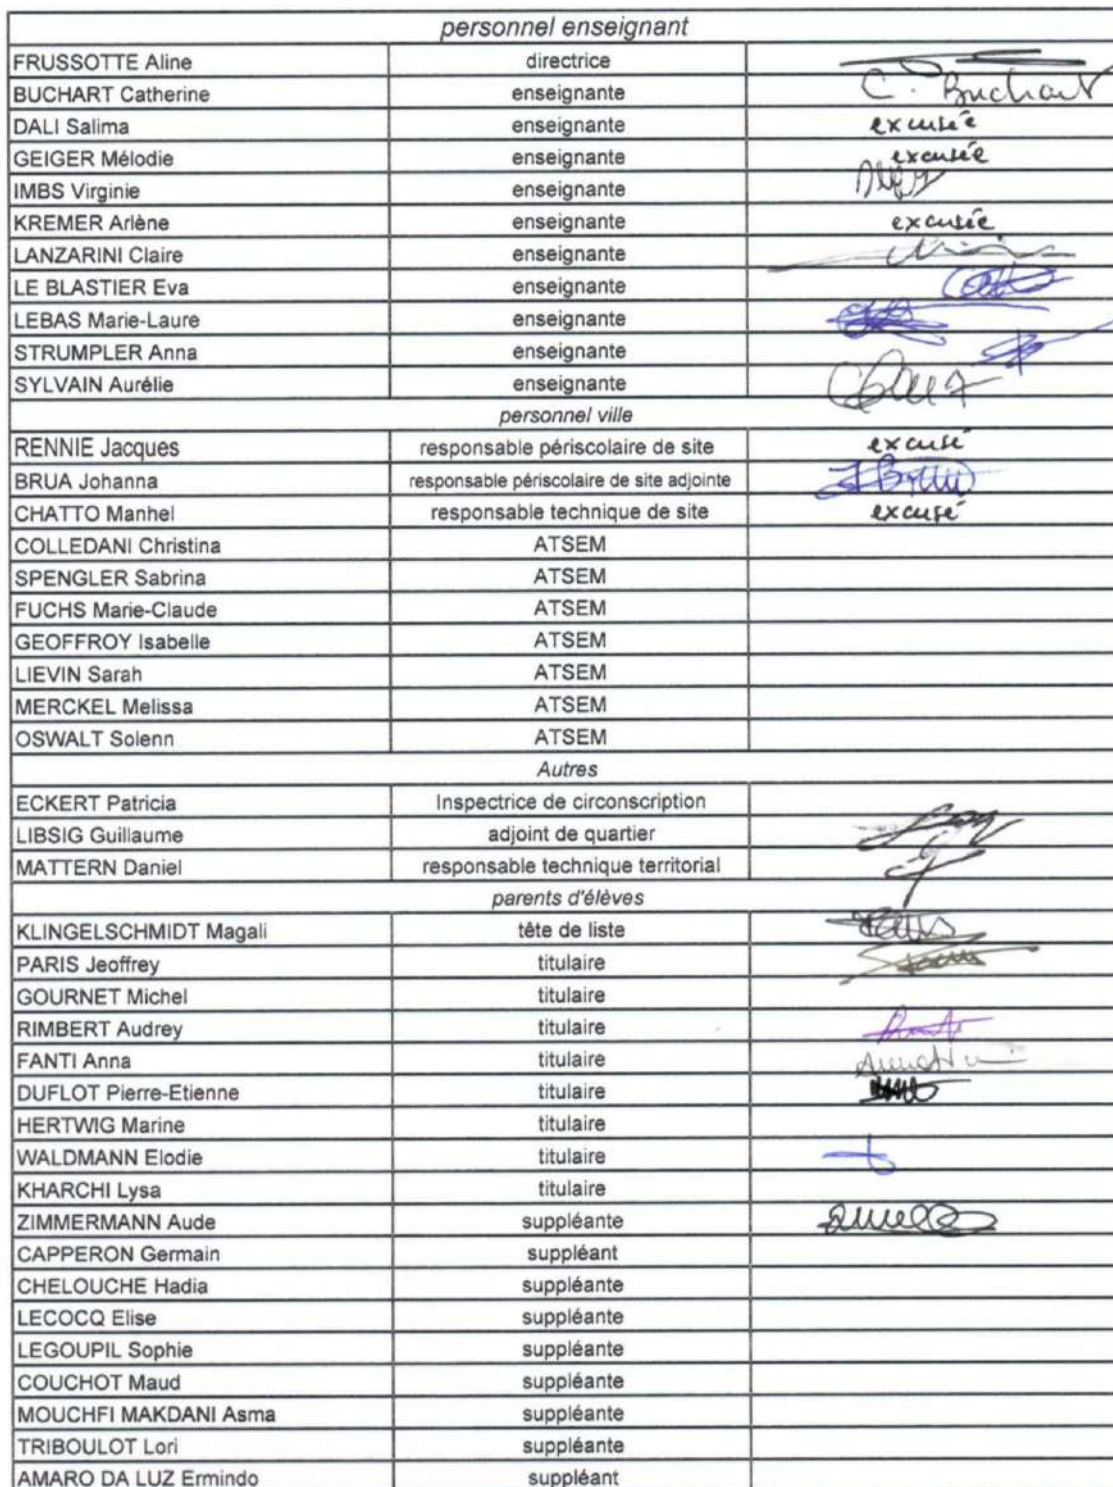 personnel enseignant
FRUSSOTTE Aline directrice
BUCHART Catherine enseignante C. Buchart
DALI Salima enseignante excusée
GEIGER Mélodie enseignante excusée
IMBS Virginie enseignante
KREMER Arlène enseignante excusée
LANZARINI Claire enseignante
LE BLASTIER Eva enseignante
LEBAS Marie-Laure enseignante
STRUMPLER Anna enseignante
SYLVAIN Aurélie enseignante
personnel ville
RENNIE Jacques responsable périscolaire de site excusé
BRUA Johanna responsable périscolaire de site adjointe
CHATTO Manhel responsable technique de site excusé
COLLEDANI Christina ATSEM
SPENGLER Sabrina ATSEM
FUCHS Marie-Claude ATSEM
GEOFFROY Isabelle ATSEM
LIEVIN Sarah ATSEM
MERCKEL Melissa ATSEM
OSWALT Solenn ATSEM
Autres
ECKERT Patricia Inspectrice de circonscription
LIBSIG Guillaume adjoint de quartier
MATTERN Daniel responsable technique territorial
parents d'élèves
KLINGELSCHMIDT Magali tête de liste
PARIS Jeoffrey titulaire
GOURNET Michel titulaire
RIMBERT Audrey titulaire
FANTI Anna titulaire
DUFLOT Pierre-Etienne titulaire
HERTWIG Marine titulaire
WALDMANN Elodie titulaire
KHARCHI Lysa titulaire
ZIMMERMANN Aude suppléante
CAPPERON Germain suppléant
CHELOUCHE Hadia suppléante
LECOCQ Elise suppléante
LEGOUPIL Sophie suppléante
COUCHOT Maud suppléante
MOUCHFI MAKDANI Asma suppléante
TRIBOULOT Lori suppléante
AMARO DA LUZ Ermindo suppléant